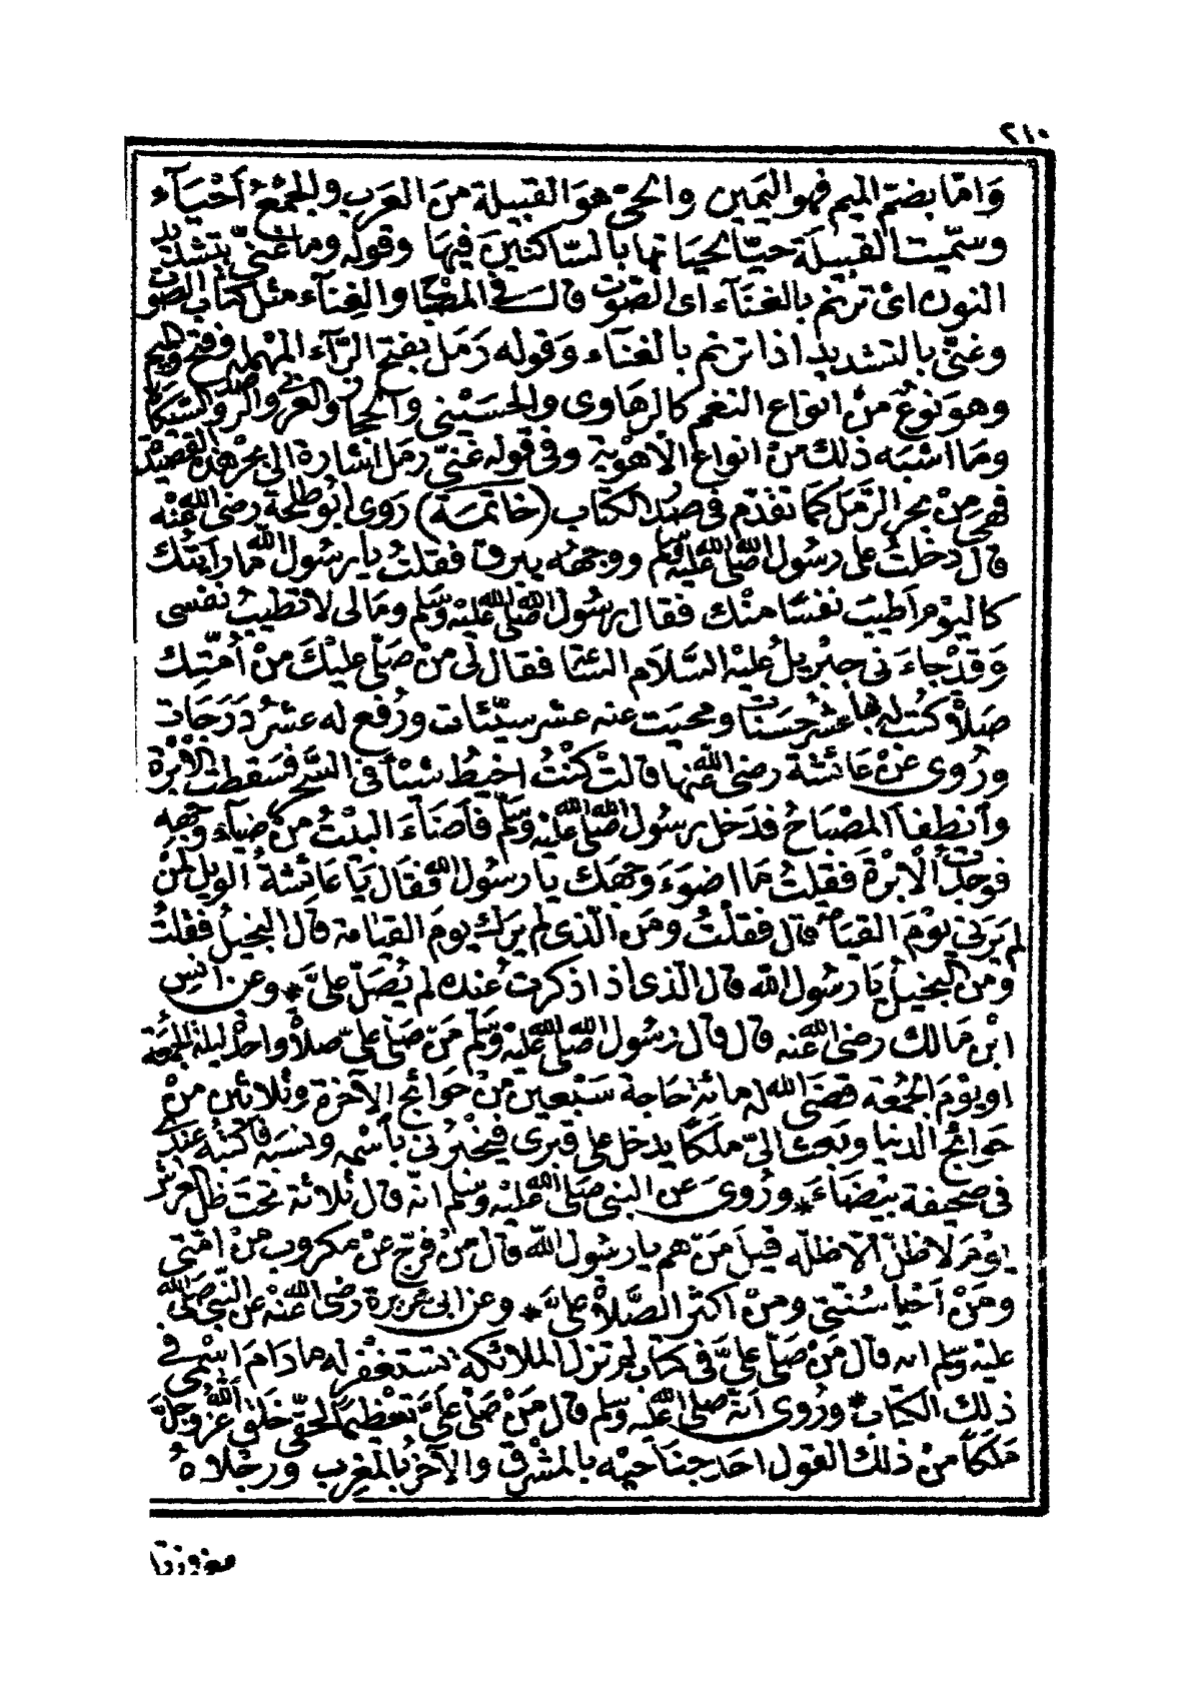 ٢١٠
وَامّا بضم الميم فهو اليمين والحىّ هوَ القبيلة منَ العَرب والجمْعُ أحْيَآء
وسمّيت القبيلة حيّاً لحيَاتها بالسّاكنين فيهَا وقوله وما غنّى بتشديد
النون اىْ ترنم بالغنَآء اى الصّوت قال فى المصْباح والغِنآء مثل كتاب الصوت
وغنّى بالتشديد اذا ترنم بالغنَآء وَقوله رَمَل بفتح الرّآء المهمله وفتح الميم
وهوَ نوعٌ منْ انوَاع النغم كالرهَاوى والحسَيْنى والحجاز والعراق والرصد والسيكا
ومَا اشبَه ذلك منْ انوَاع الاهْوية وفى قوله غنىّ رمَل اشارة الى بحر هذه القصيدة
فهى مِنْ بحر الرّمَل كمَا تقدّم فى صدْر الكتاب (خاتمَة) رَوى ابُو طلحَة رضى الله عنْه
قال دَخلتُ على رسُول الله صَلى الله عليْه وسَلم ووجههُ يبرق فقلتُ يا رسُول الله ما رايتك
كاليَوم اَطيبَ نفسًا منك فقال رسُول الله صَلى الله عليْه وَسَلم ومَا لى لا تطيبُ نفسى
وَقدْ جاءَ نى جبْريلُ عليْه السَّلام السّاعة فقال لى منْ صَلّى عليْكَ منْ اُمّتِك
صَلاة كتبَ له بهَا عشْر حسَنات ومحيَت عنه عشر سيّئات ورُفع له عشرُ دَرَجات
ورُوى عنْ عَائشة رضى الله عنهَا قالتْ كنْتُ اخيط شيْأ فى السَّحَر فسَقطت الاِبْرَة
وانطفأ المصْباحُ فدَخل رسُول الله صَلى الله عليْه وسَلم فأضَآءَ البيْتُ منْ ضيَآء وَجهه
فوجدْتُ الاِبْرَة فقلتُ مَا اضوَءَ وَجهَك يا رسُول الله فقَال يَا عَائشةُ الويل لمنْ
لم يَرنى يَوْمَ القيَامَة قال فقلْتُ ومَن الّذى لم يرَك يومَ القيَامة قال البَخيلُ فقلتُ
وَمنَ البَخيلُ يَا رسُول الله قال الّذى اذ اذكرت عندَه لم يُصَلّ علىَّ * وعن انس
ابْن مَالك رضى الله عنه قال قال رَسُول الله صَلى الله عليْه وَسَلم مَنْ صَلى علىّ صلاة واحدَة ليْلة الجمُعَة
او يَوْمَ الجمُعَة قضَى الله له مائة حَاجة سَبْعين منْ حَوائج الآخرة وَثلاثين منْ
حَوائج الدنيا وبَعث الىّ ملَكًا يدخل على قبرى فيخبُرنى بأسْمه ونسَبه فاكتبُه عندى
فى صحيفة بيْضَاءَ * ورُوىَ عَن النبى صَلى الله عليْه وَسلم انّه قال ثلاثة تحتَ ظل العرش
يوْمَ لا ظلّ الّا ظلّه قيلَ مَنْ هم يا رسُول الله قال منْ فرّج عنْ مكروب منْ امّتى
ومَنْ اَحْيا سُنّتى ومَنْ اكثرَ الصَّلاة علىَّ * وعن ابى هريرة رضى الله عنْه عَن النّبى صَلى الله
عليْه وَسلم انه قال مَنْ صَلّى علىَّ فى كتاب لم تزل الملائكة تستغفر له ما دَامَ اسْمى فى
ذلك الكتاب * ورُوى اَنّه صَلى الله عليْه وسلم قال مَنْ صَلى علىَّ تعْظيمًا لحقّى خلق اللهُ عَزّ وَجَلّ
مَلكًا منْ ذلك القول احَد جنَاحَيْه بالمشْرق والآخرُ بالمغرب ورجْلاهُ
مغروزتا